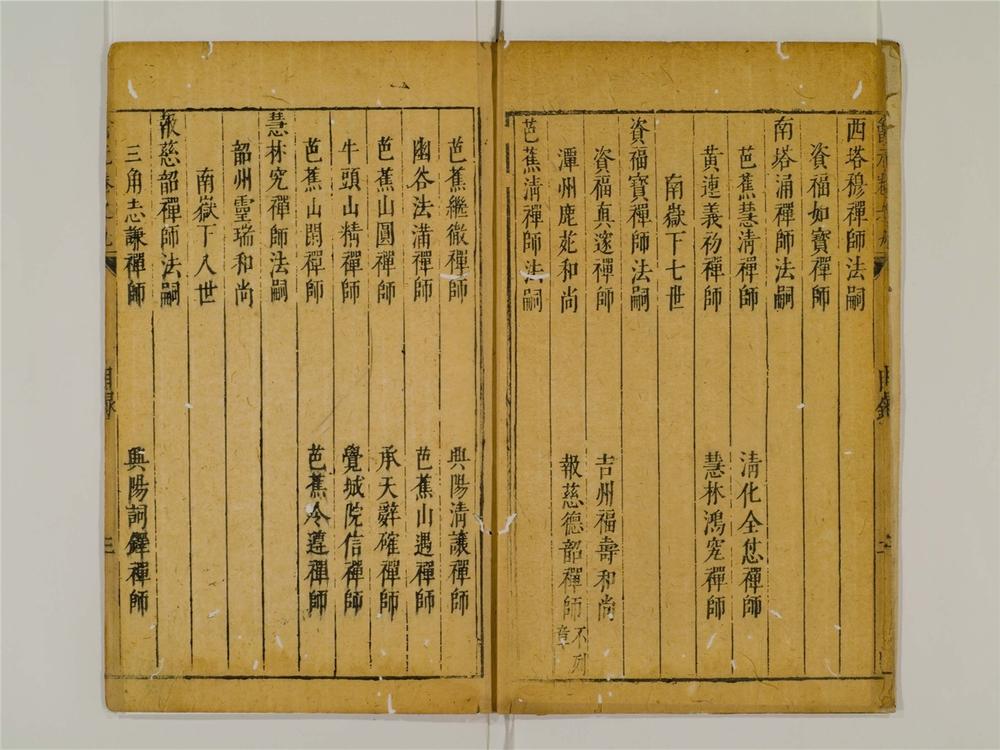 西塔穆禪師法嗣
資福如寶禪師
南塔涌禪師法嗣
芭蕉慧清禪師 清化全怤禪師
黃連義初禪師 慧林鴻究禪師
南嶽下七世
資福寶禪師法嗣
資福真邃禪師 吉州福壽和尚
潭州鹿苑和尚 報慈德韶禪師 不列章
芭蕉清禪師法嗣
芭蕉繼徹禪師 興陽清讓禪師
幽谷法滿禪師 芭蕉山遇禪師
芭蕉山圓禪師 承天辭確禪師
牛頭山精禪師 覺城院信禪師
芭蕉山閑禪師 芭蕉令遵禪師
慧林究禪師法嗣
韶州靈瑞和尚
南嶽下八世
報慈韶禪師法嗣
三角志謙禪師 興陽詞鐸禪師
目錄
三